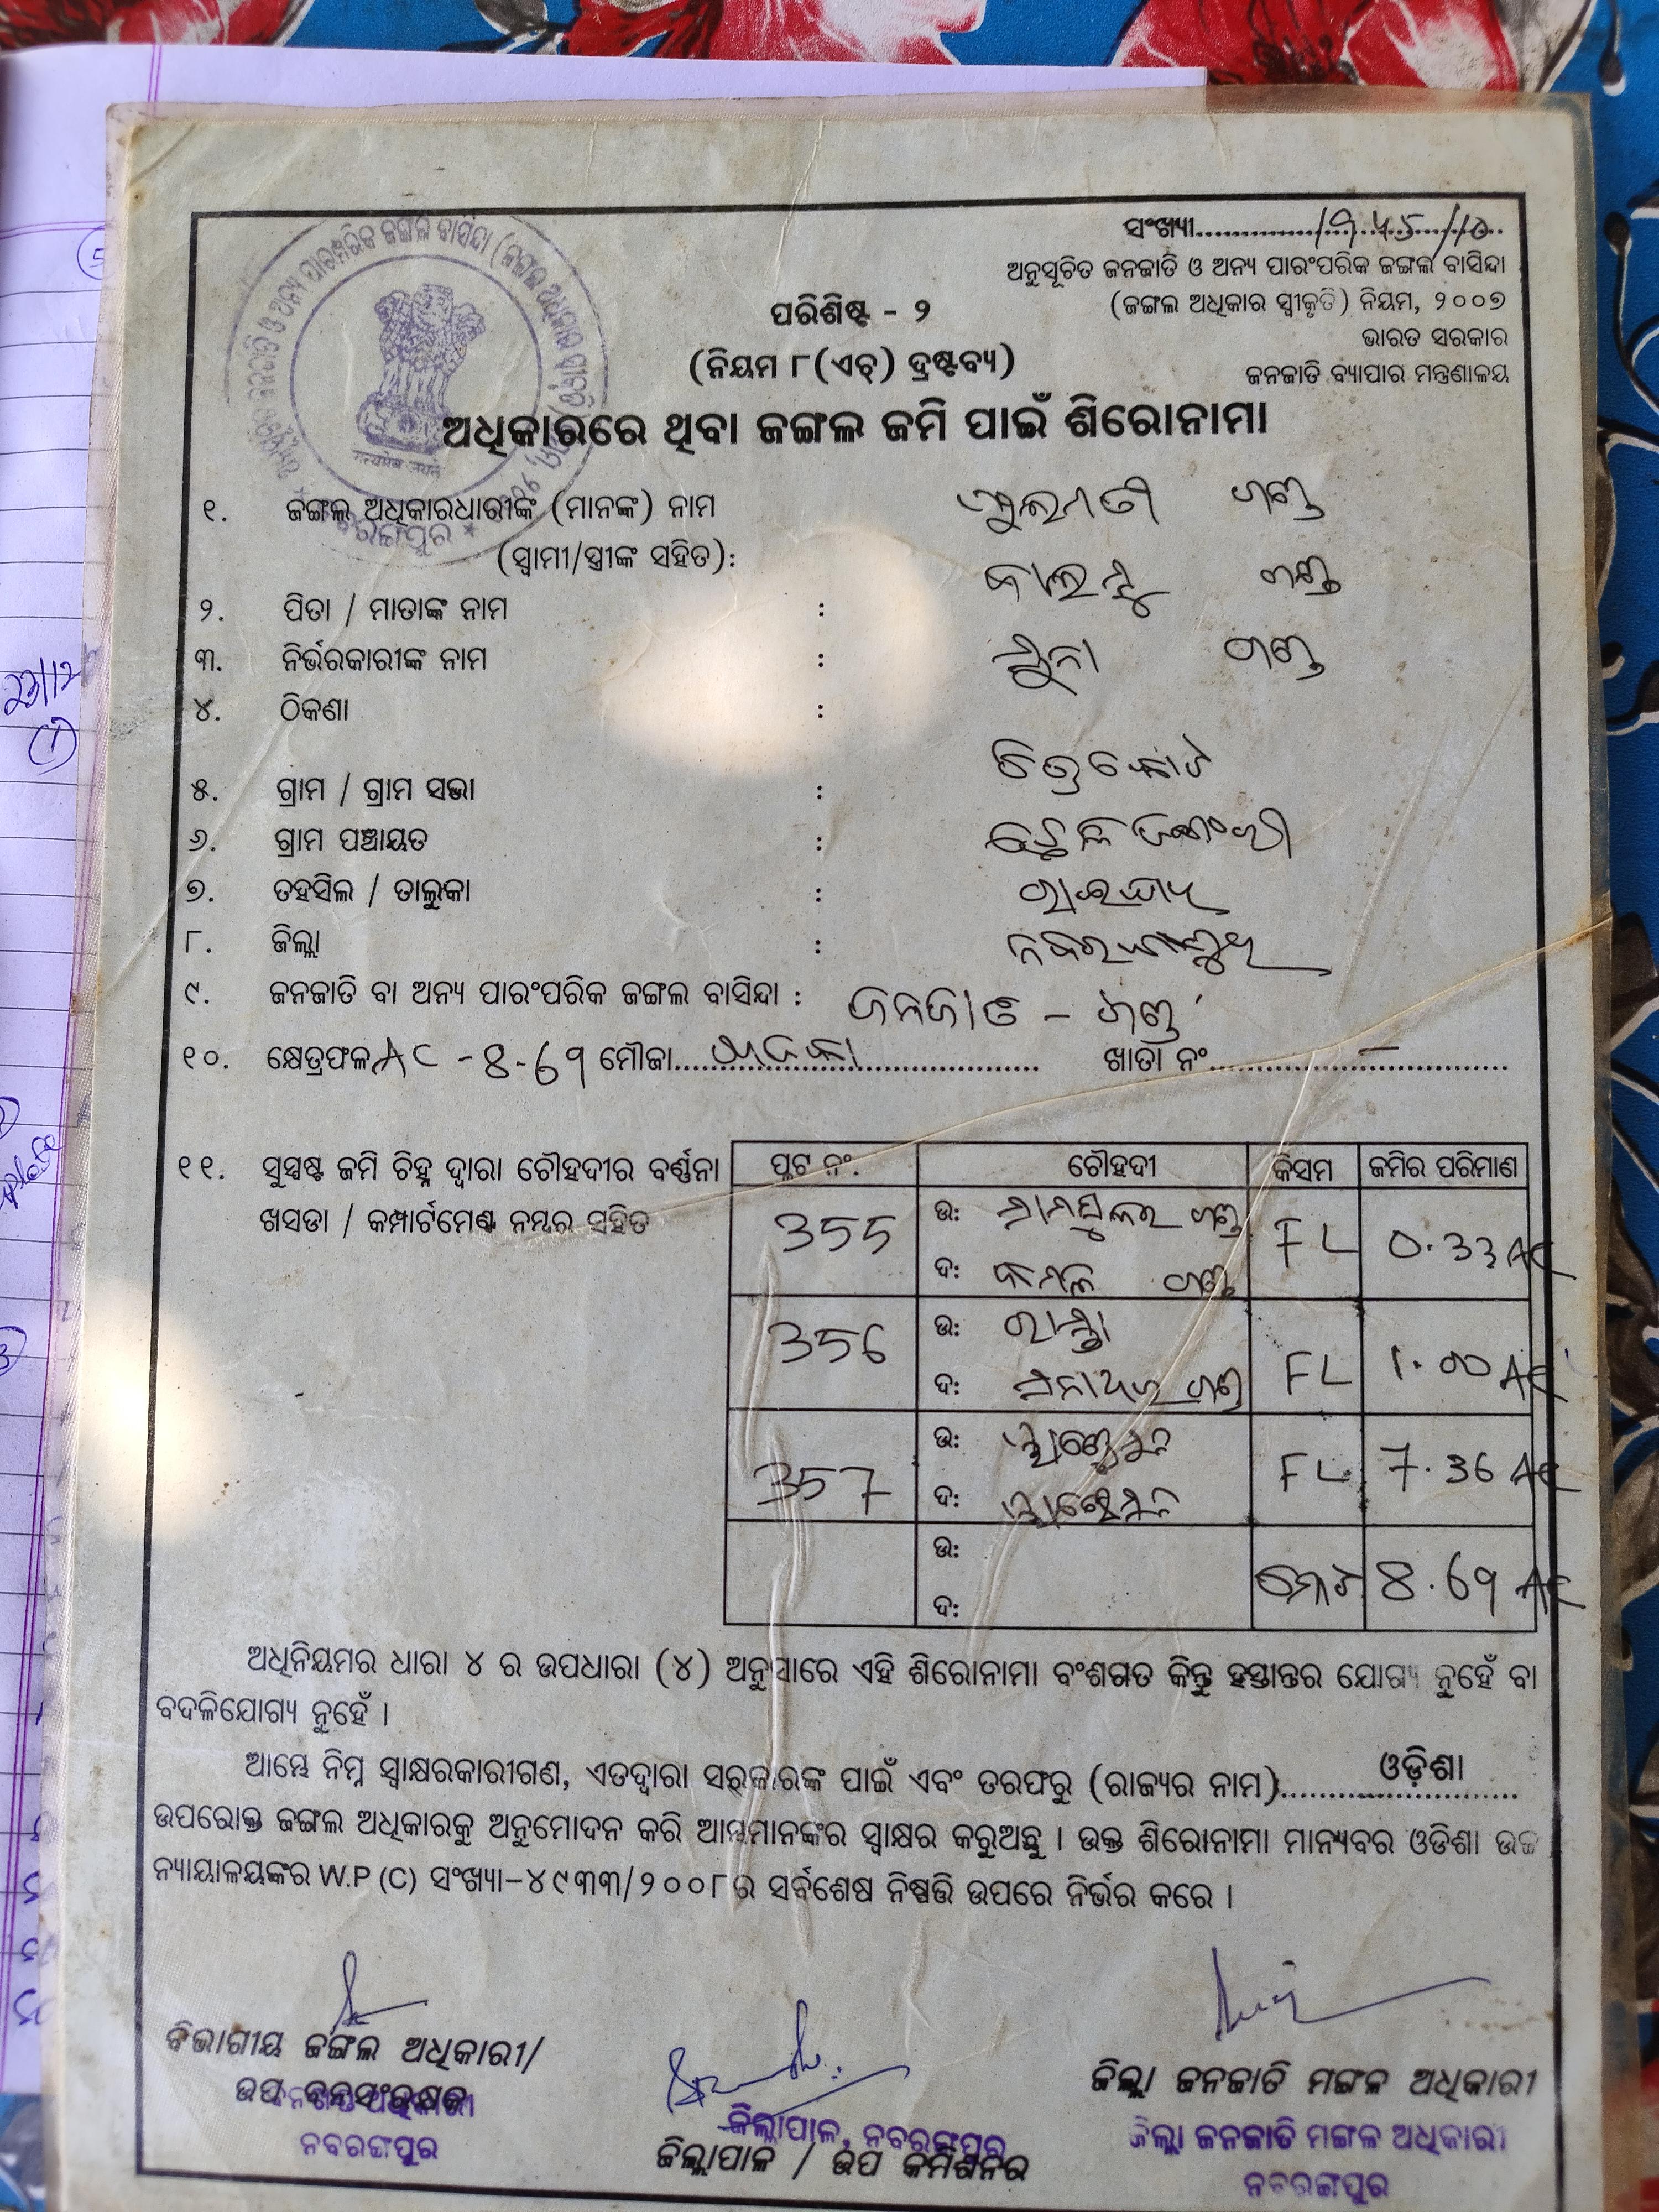 ସଂଖ୍ୟା
ଅନୁସୂଚିତ ଜନଜାତି ଓ ଅନ୍ୟ ପାରଂପରିକ ଜଙ୍ଗଲ ବାସିନ୍ଦା
(ଜଙ୍ଗଲ ଅଧିକାର ସ୍ୱୀକୃତି) ନିୟମ, ୨୦୦୭
ଭାରତ ସରକାର
ଜନଜାତି ବ୍ୟାପାର ମନ୍ତ୍ରଣାଳୟ
ପରିଶିଷ୍ଟ - ୨
(ନିୟମ ୮(ଏଚ୍) ଦ୍ରଷ୍ଟବ୍ୟ)
ଅଧିକାରରେ ଥିବା ଜଙ୍ଗଲ ଜମି ପାଇଁ ଶିରୋନାମା
୧. ଜଙ୍ଗଲ ଅଧିକାରଧାରୀଙ୍କ (ମାନଙ୍କ) ନାମ ଗଣ୍ଡ
(ସ୍ୱାମୀ/ସ୍ତ୍ରୀଙ୍କ ସହିତ):
୨. ପିତା / ମାତାଙ୍କ ନାମ : ଗଣ୍ଡ
୩. ନିର୍ଭରକାରୀଙ୍କ ନାମ : ଗଣ୍ଡ
୪. ଠିକଣା :
୫. ଗ୍ରାମ / ଗ୍ରାମ ସଭା :
୬. ଗ୍ରାମ ପଞ୍ଚାୟତ :
୭. ତହସିଲ / ତାଲୁକା : ରାଇଘର
୮. ଜିଲ୍ଲା : ନବରଙ୍ଗପୁର
୯. ଜନଜାତି ବା ଅନ୍ୟ ପାରଂପରିକ ଜଙ୍ଗଲ ବାସିନ୍ଦା : ଜନଜାତି - ଗଣ୍ଡ
୧୦. କ୍ଷେତ୍ରଫଳ AC - 8.69 ମୌଜା ଖାତା ନଂ
୧୧. ସୁସ୍ପଷ୍ଟ ଜମି ଚିହ୍ନ ଦ୍ୱାରା ଚୌହଦୀର ବର୍ଣ୍ଣନା
ଖସଡା / କମ୍ପାର୍ଟମେଣ୍ଟ ନମ୍ବର ସହିତ
ପ୍ଲଟ ନଂ. ଚୌହଦୀ କିସମ ଜମିର ପରିମାଣ
355 ଉ: ଗଣ୍ଡ FL 0.33 AC
ଦ: କମଳ ଗଣ୍ଡ
356 ଉ: ରାସ୍ତା FL 1.00 AC
ଦ: ଗଣ୍ଡ
357 ଉ: FL 7.36 AC
ଦ:
ଉ: ମୋଟ 8.69 AC
ଦ:
ଅଧିନିୟମର ଧାରା ୪ ର ଉପଧାରା (୪) ଅନୁସାରେ ଏହି ଶିରୋନାମା ବଂଶଗତ କିନ୍ତୁ ହସ୍ତାନ୍ତର ଯୋଗ୍ୟ ନୁହେଁ ବା
ବଦଳିଯୋଗ୍ୟ ନୁହେଁ ।
ଆମ୍ଭେ ନିମ୍ନ ସ୍ୱାକ୍ଷରକାରୀଗଣ, ଏତଦ୍ୱାରା ସର୍‌କାରଙ୍କ ପାଇଁ ଏବଂ ତରଫରୁ (ରାଜ୍ୟର ନାମ) ଓଡ଼ିଶା
ଉପରୋକ୍ତ ଜଙ୍ଗଲ ଅଧିକାରକୁ ଅନୁମୋଦନ କରି ଆମ୍ଭମାନଙ୍କର ସ୍ୱାକ୍ଷର କରୁଅଛୁ । ଉକ୍ତ ଶିରୋନାମା ମାନ୍ୟବର ଓଡିଶା ଉଚ୍ଚ
ନ୍ୟାୟାଳୟଙ୍କର W.P (C) ସଂଖ୍ୟା-୪୯୩୩/୨୦୦୮ର ସର୍ବଶେଷ ନିଷ୍ପତ୍ତି ଉପରେ ନିର୍ଭର କରେ ।
ବିଭାଗୀୟ ଜଙ୍ଗଲ ଅଧିକାରୀ/
ଉପ ବନସଂରକ୍ଷକ
ନବରଙ୍ଗପୁର
ଜିଲ୍ଲାପାଳ, ନବରଙ୍ଗପୁର
ଜିଲ୍ଲାପାଳ / ଉପ କମିଶନର
ଜିଲ୍ଲା ଜନଜାତି ମଙ୍ଗଳ ଅଧିକାରୀ
ଜିଲ୍ଲା ଜନଜାତି ମଙ୍ଗଳ ଅଧିକାରୀ
ନବରଙ୍ଗପୁର